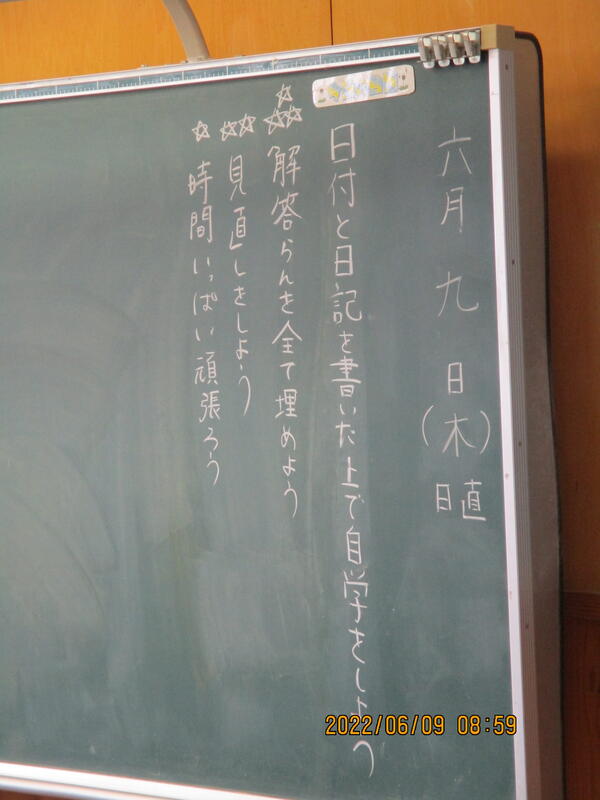 六月九日(木)日直
日付と日記を書いた上で自学をしよう
☆☆☆解答らんを全て埋めよう
☆☆見直しをしよう
☆時間いっぱい頑張ろう
2022/06/09 08:59